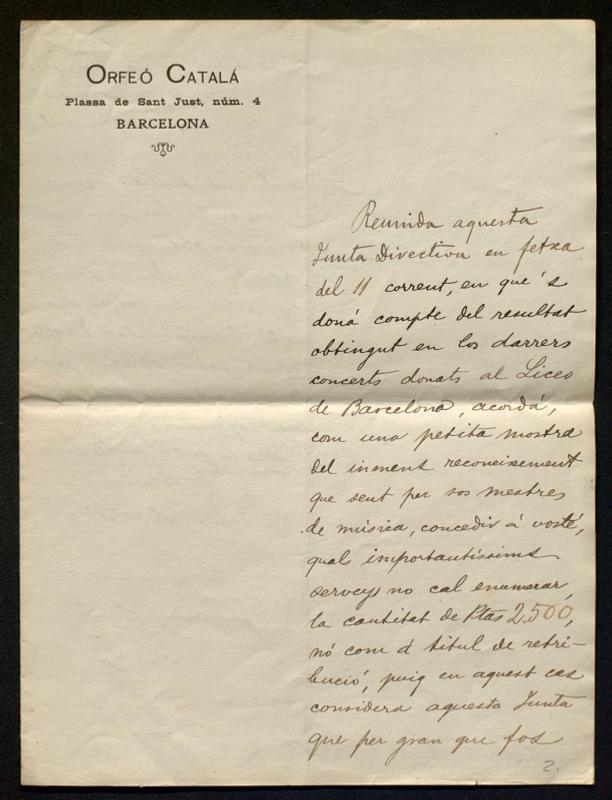 ORFEÓ CATALÁ
Plassa de Sant Just, núm. 4
BARCELONA
Reunida aquesta
Junta Directiva en fetxa
del 11 corrent, en que 's
doná compte del resultat
obtingut en los darrers
concerts donats al Liceo
de Barcelona, acordá,
com una petita mostra
del inmens reconeixement
que sent per sos mestres
de música, concedir á vosté,
qual importantíssims
serveys no cal enumerar,
la cantitat de Ptas 2.500,
nó com á titul de retri-
bució, puig en aquest cas
considera aquesta Junta
que per gran que fos
2.